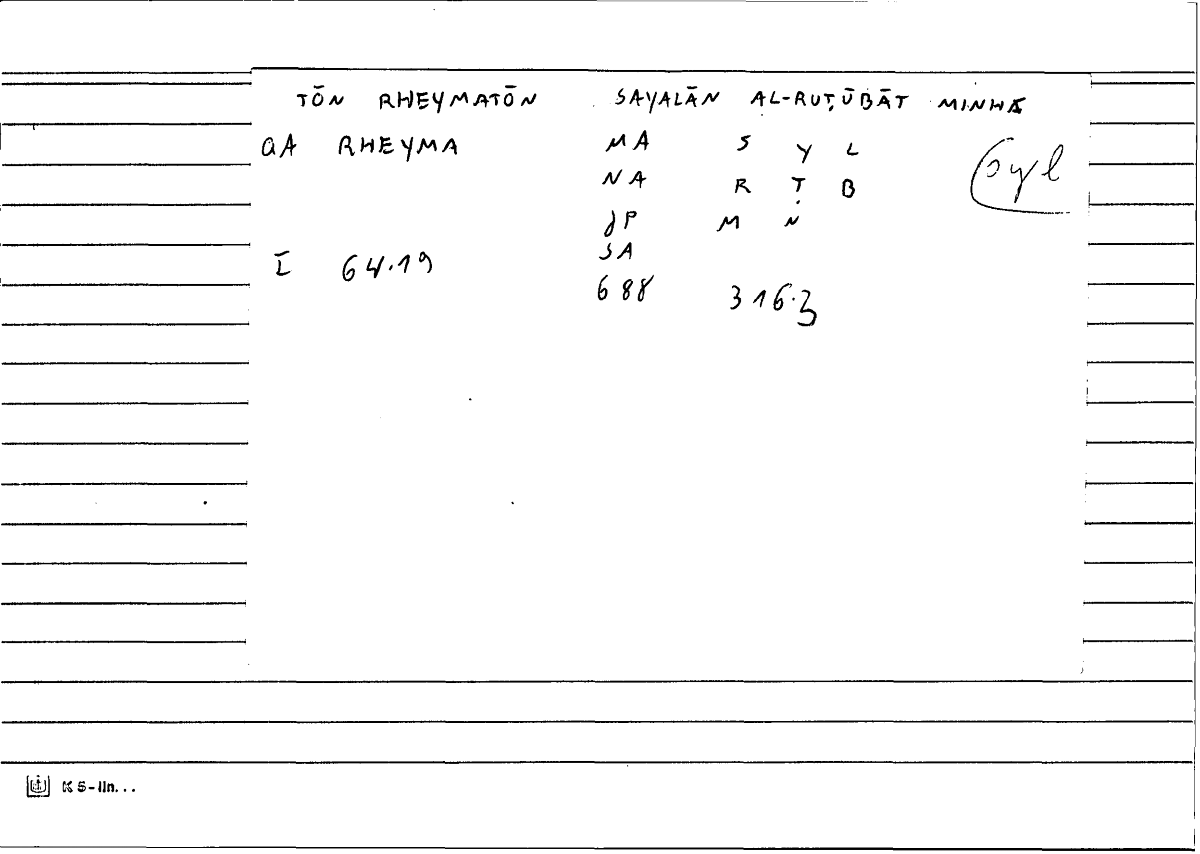 TŌN RHEYMATŌN SAYALĀN AL-RUṬŪBĀT MINHĀ
QA RHEYMA MA S Y L syl
NA R Ṭ B
JP M N
SA
I 64.19
688 316.3
K5-lin...